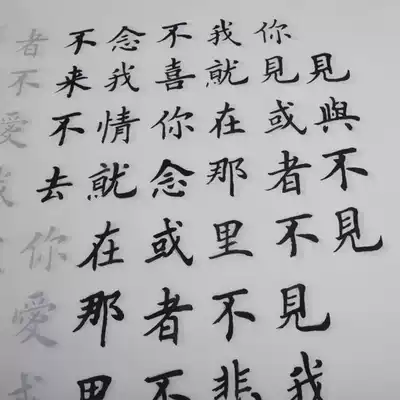 見與不見
你見或者不見我
我就在那里不悲
不喜你念或者不
念我情就在那里
不来不去你愛或
者不愛我